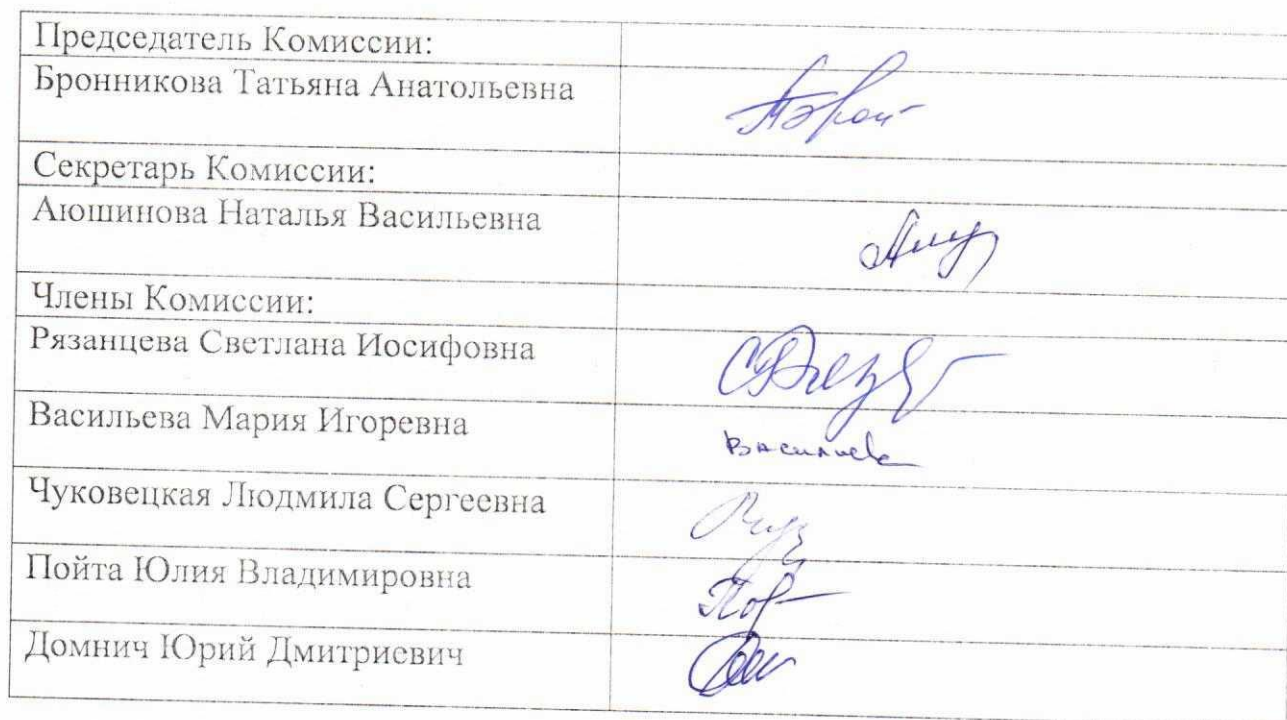 Председатель Комиссии:
Бронникова Татьяна Анатольевна
Секретарь Комиссии:
Аюшинова Наталья Васильевна
Члены Комиссии:
Рязанцева Светлана Иосифовна
Васильева Мария Игоревна
Васильева
Чуковецкая Людмила Сергеевна
Пойта Юлия Владимировна
Домнич Юрий Дмитриевич